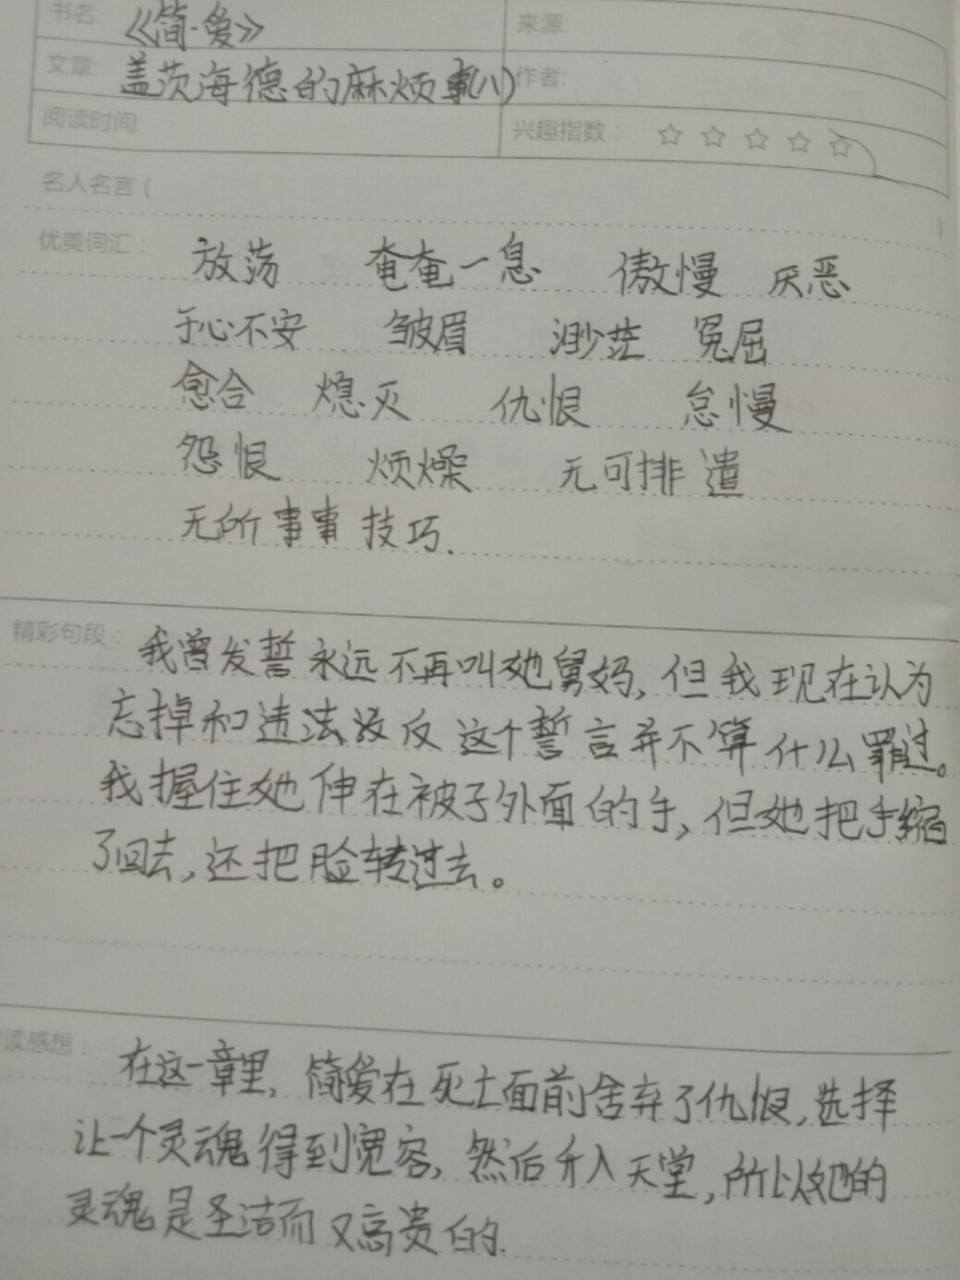 书名: 《简·爱》 来源:
文章: 盖茨海德的麻烦事(八) 作者:
阅读时间: 兴趣指数: ☆ ☆ ☆ ☆ ☆
名人名言 ( )
优美词汇: 放荡 奄奄一息 傲慢 厌恶
于心不安 皱眉 渺茫 冤屈
愈合 熄灭 仇恨 怠慢
怨恨 烦燥 无可排遣
无所事事 技巧.
精彩句段: 我曾发誓永远不再叫她舅妈,但我现在认为
忘掉和违法没反这个誓言并不算什么罪过。
我握住她伸在被子外面的手,但她把手缩
了回去,还把脸转过去。
读感想: 在这一章里,简爱在死亡面前舍弃了仇恨,选择
让一个灵魂得到宽容,然后升入天堂,所以她的
灵魂是圣洁而又高贵的.